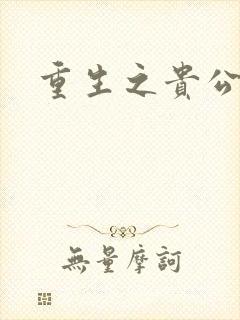 重生之貴公
無量摩訶